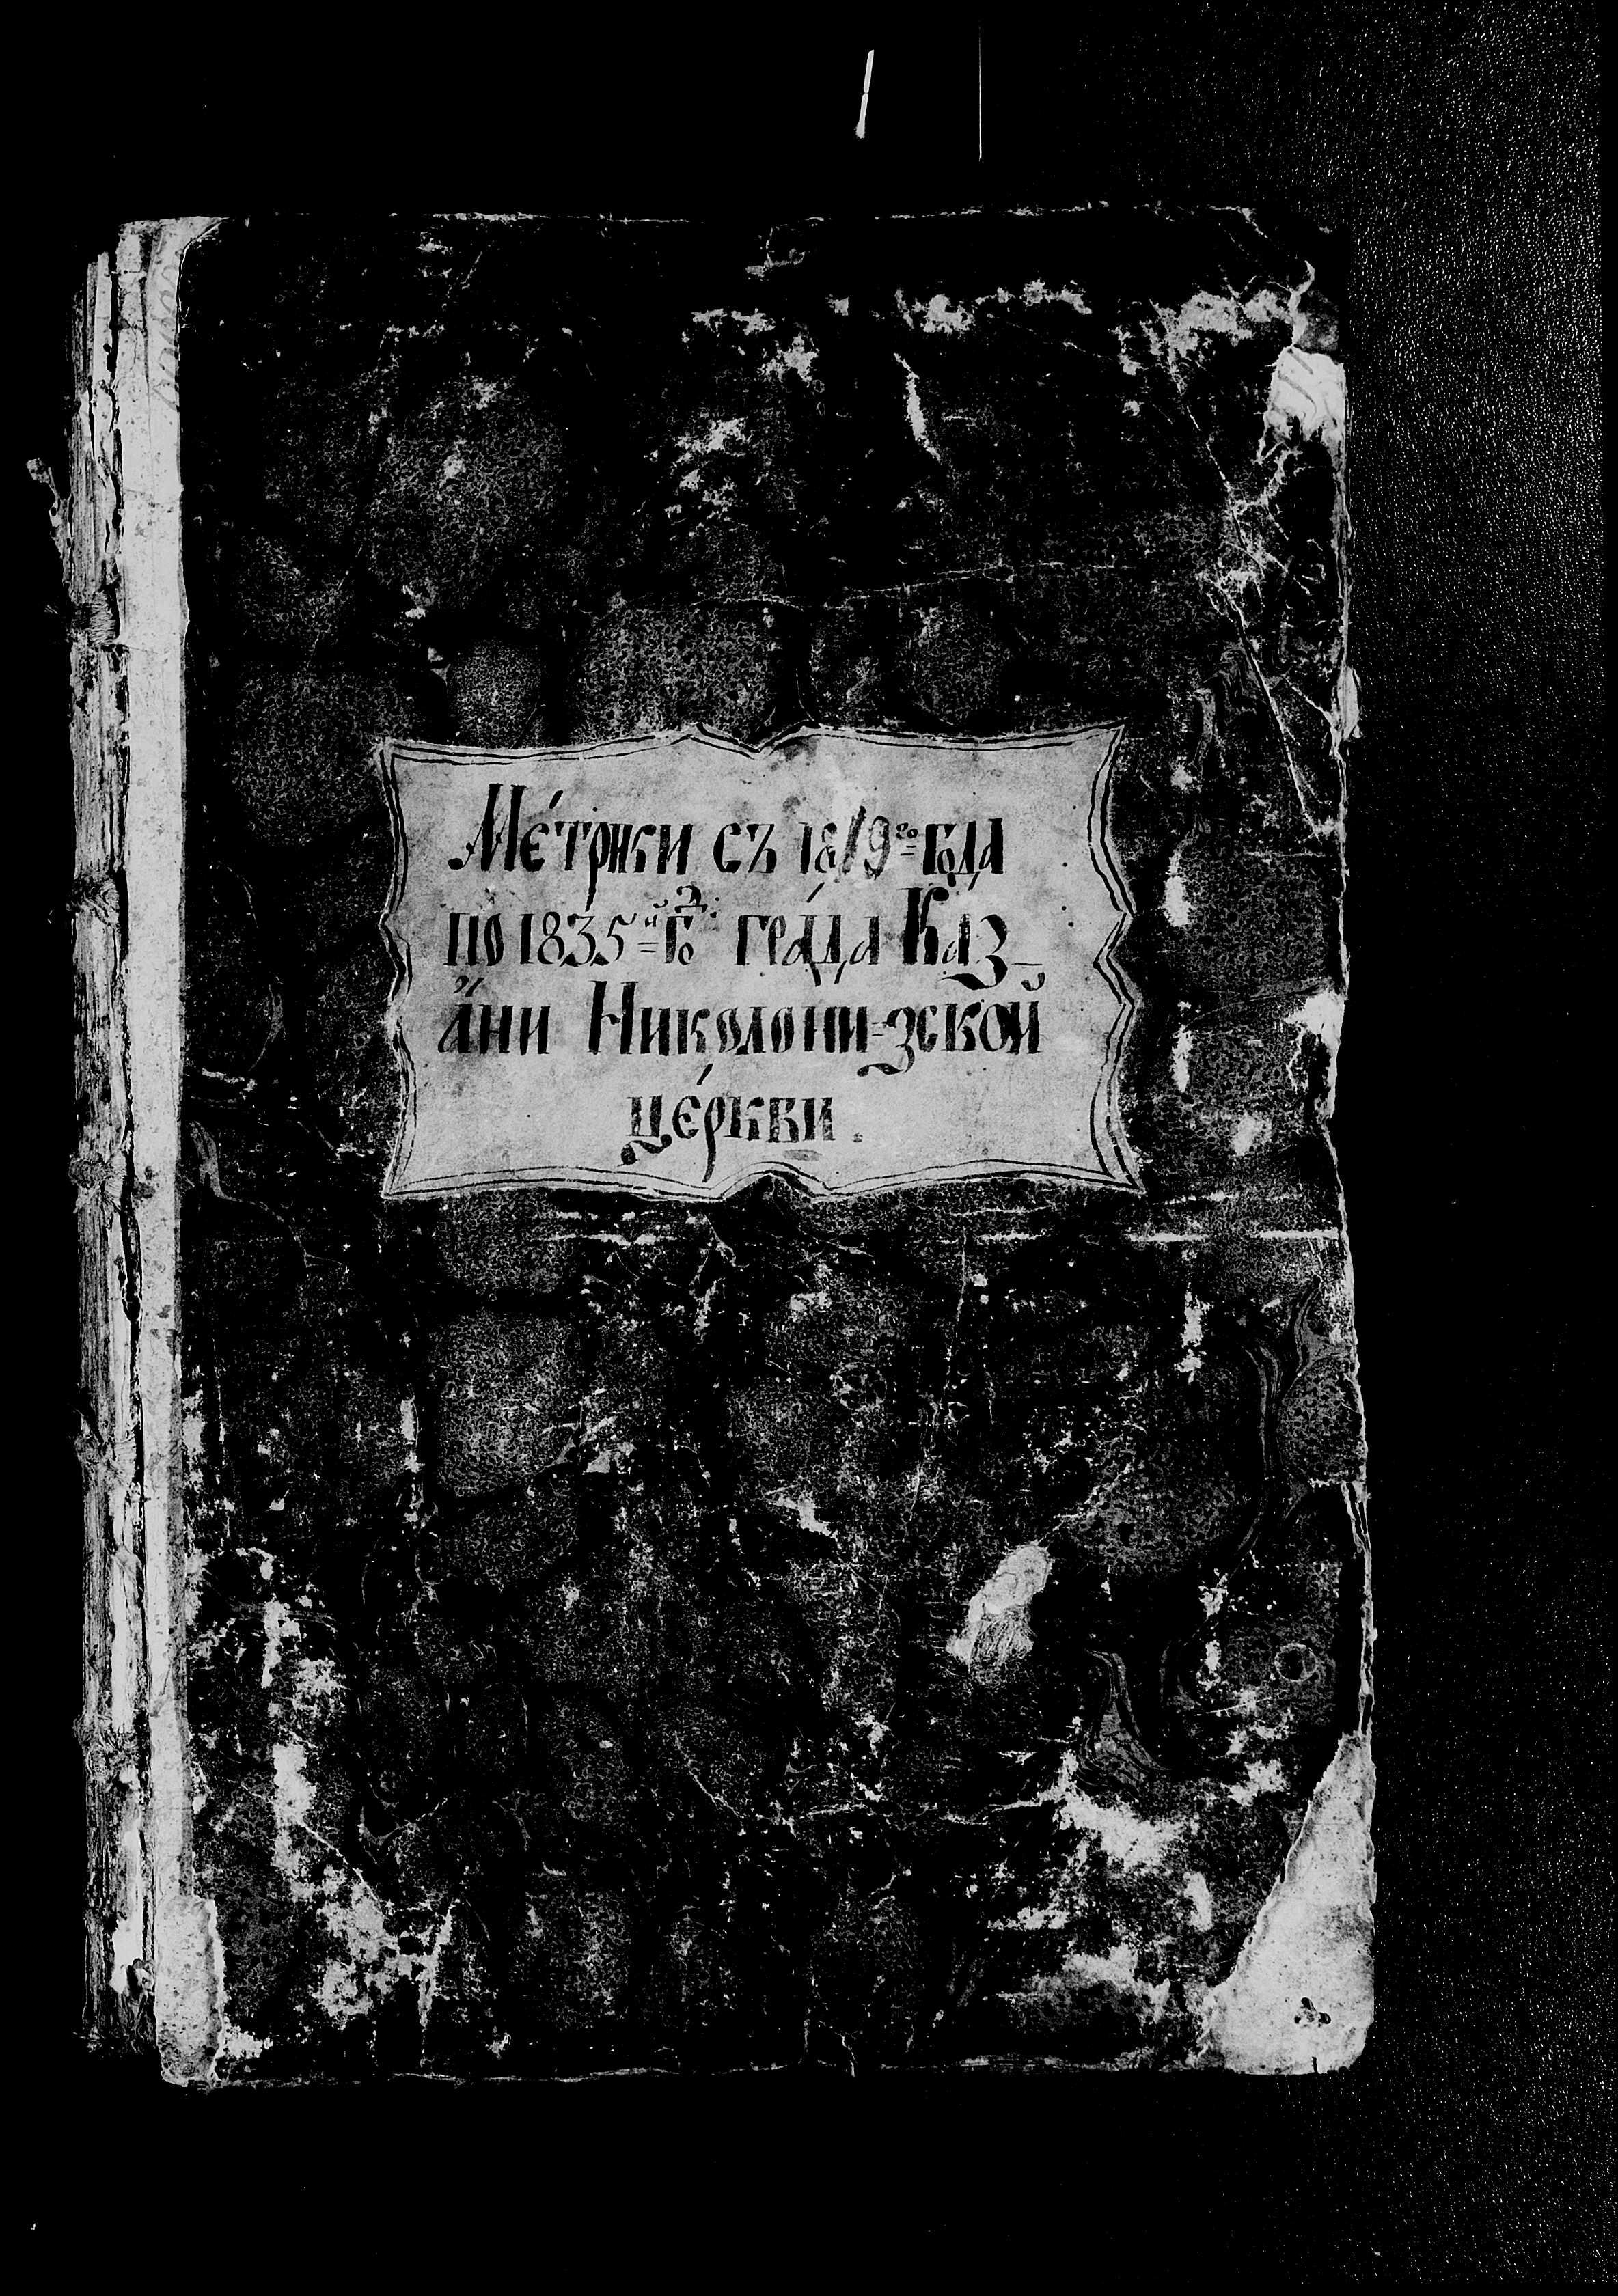 Ме́трики съ 1819го года
по 1835й Год: гра́да Каз-
а́ни Николони-зской
це́ркви.